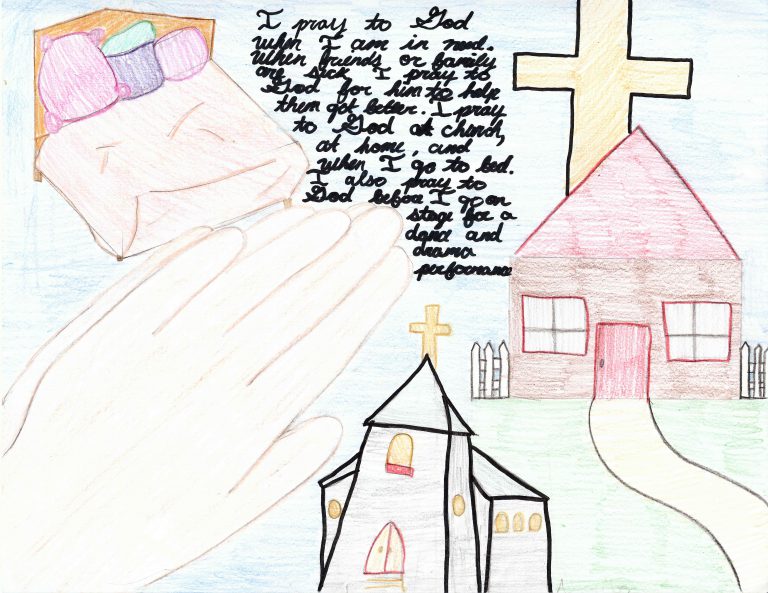 I pray to God
when I am in need.
When friends or family
are sick I pray to
God for him to help
them get better. I pray
to God at church,
at home, and
when I go to bed.
I also pray to
God before I go on
stage for a
dance and
drama
performance